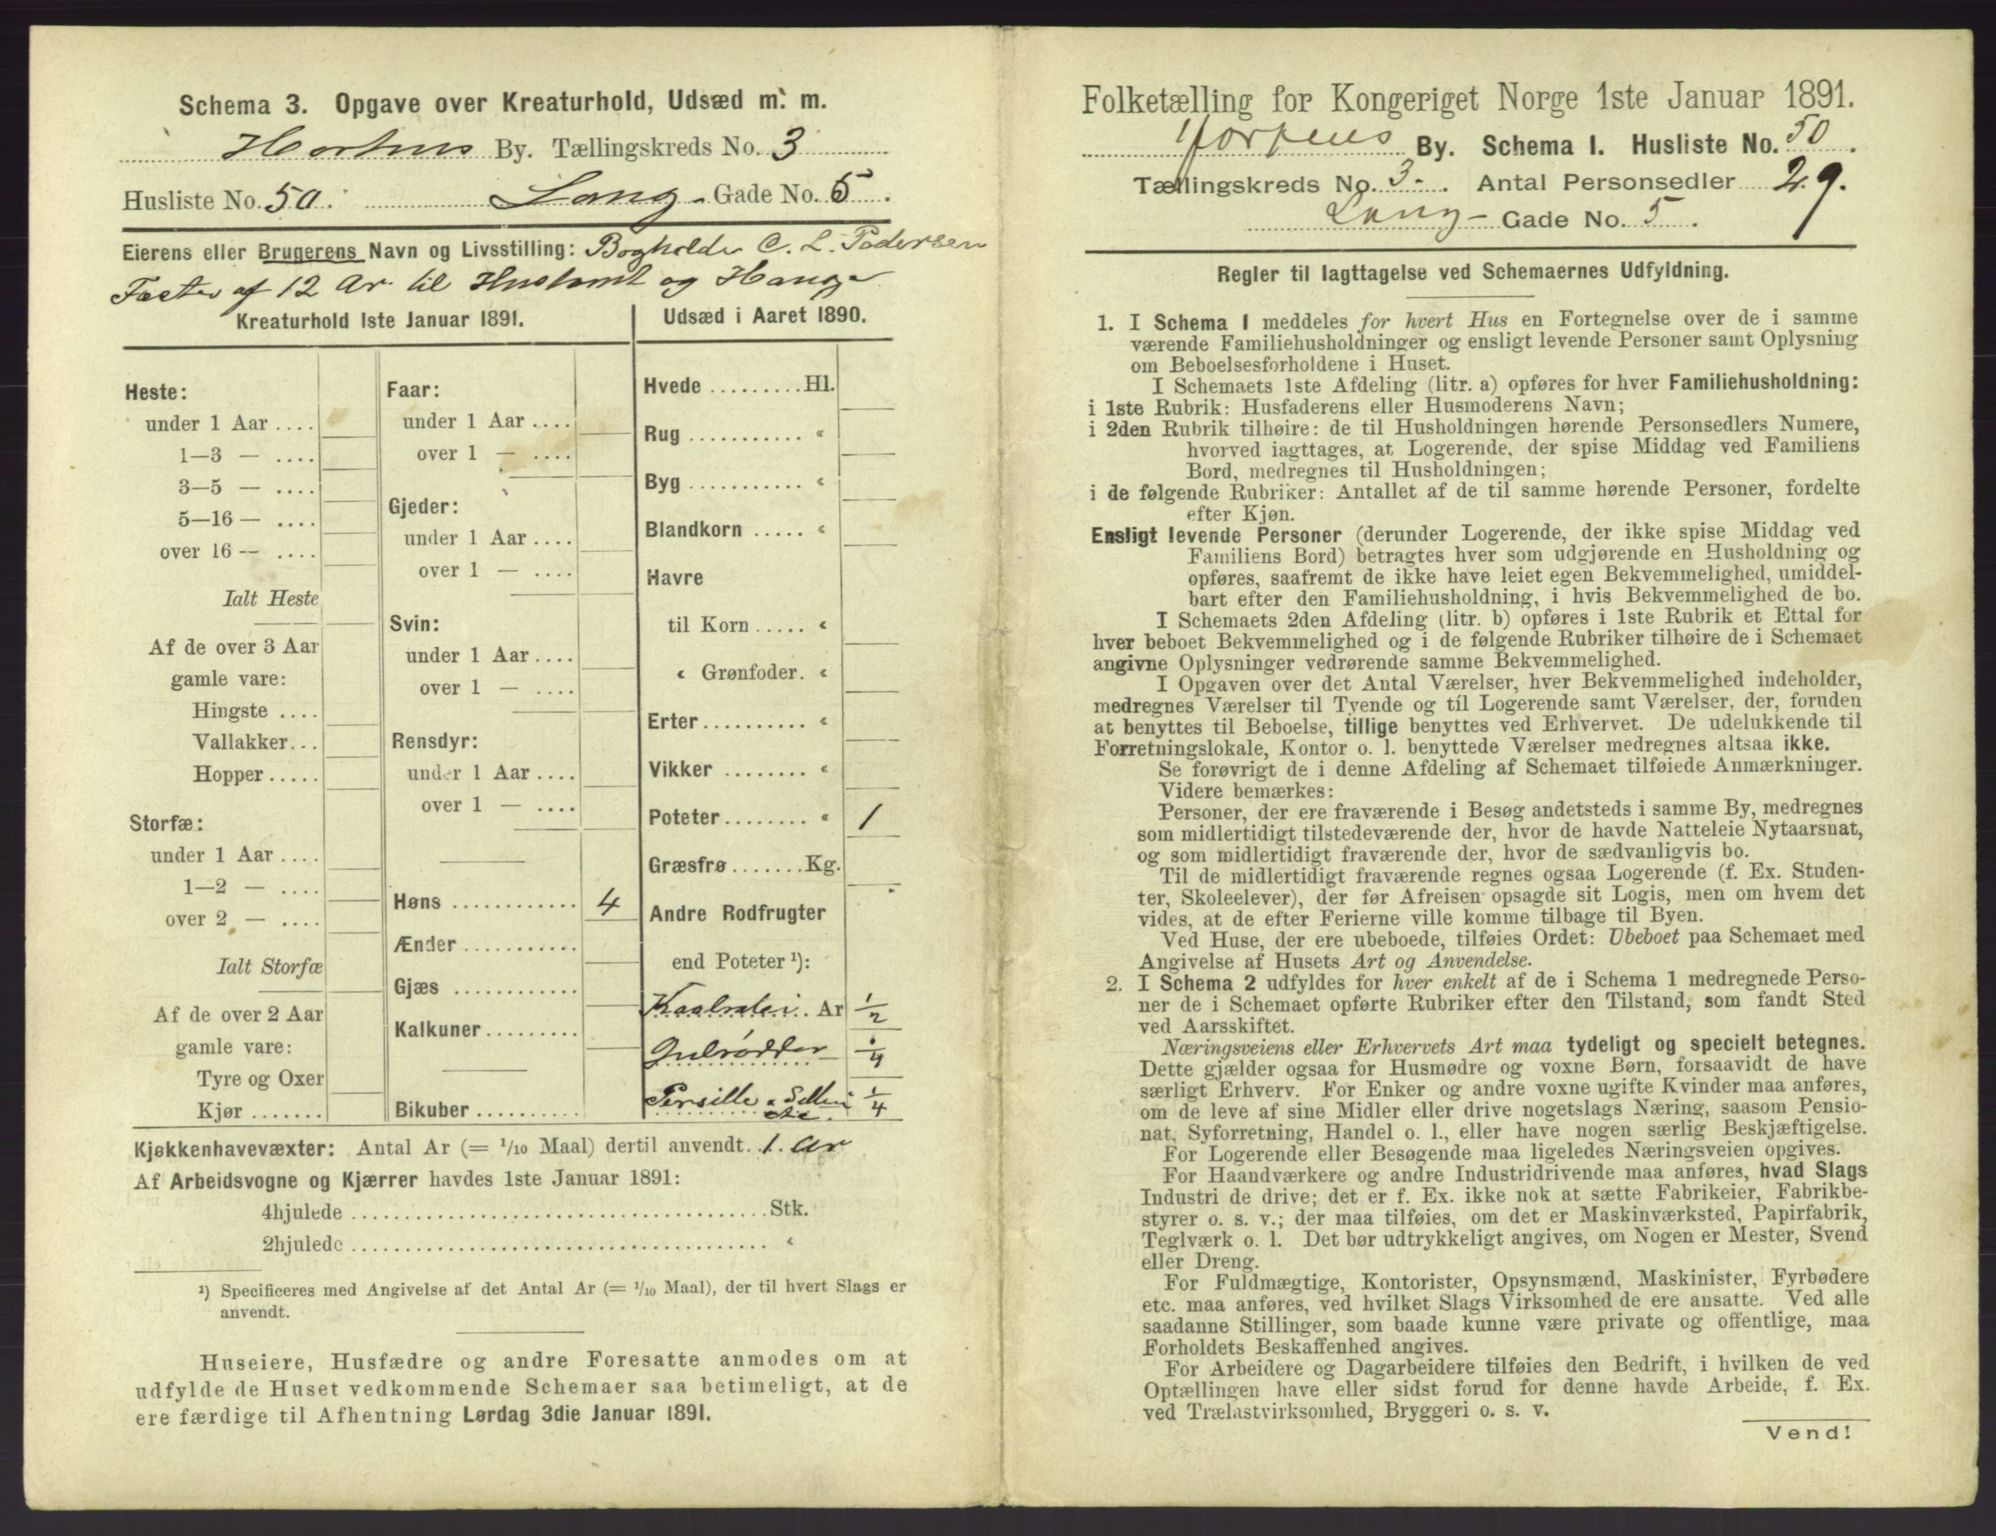 Schema 3. Opgave over Kreaturhold, Udsæd m. m.
Hortens By. Tællingskreds No. 3
Husliste No. 50. Lang- Gade No. 5.
Eierens eller Brugerens Navn og Livsstilling: Bogholder C. L. Pedersen
Fæster af 12 Ar. til Hustomt og Hauge
Kreaturhold 1ste Januar 1891.
Heste:
under 1 Aar ....
1—3 — ....
3—5 — ....
5—16 — ....
over 16 — ....
Ialt Heste
Af de over 3 Aar
gamle vare:
Hingste ....
Vallakker...
Hopper.....
Storfæ:
under 1 Aar ....
1—2 — ....
over 2 — ....
Ialt Storfæ
Af de over 2 Aar
gamle vare:
Tyre og Oxer
Kjør .......
Faar:
under 1 Aar ....
over 1 — ....
Gjeder:
under 1 Aar ....
over 1 — ....
Svin:
under 1 Aar ....
over 1 — ....
Rensdyr:
under 1 Aar ....
over 1 — ....
Høns ............ 4
Ænder ...........
Gjæs ............
Kalkuner.........
Bikuber ..........
Udsæd i Aaret 1890.
Hvede .........Hl.
Rug ........... «
Byg ........... «
Blandkorn ..... «
Havre
til Korn ..... «
« Grønfoder. «
Erter.......... «
Vikker ........ «
Poteter........ « 1
Græsfrø .......Kg.
Andre Rodfrugter
end Poteter ¹):
Kaalrabi.. Ar 1/2
Gulrødder 1/4
Persille « Selleri 1/4
Kjøkkenhavevæxter: Antal Ar (= 1/10 Maal) dertil anvendt. 1. Ar
Af Arbeidsvogne og Kjærrer havdes 1ste Januar 1891:
4hjulede ........................................Stk.
2hjulede ........................................ «
¹) Specificeres med Angivelse af det Antal Ar (= 1/10 Maal), der til hvert Slags er
anvendt.
Huseiere, Husfædre og andre Foresatte anmodes om at
udfylde de Huset vedkommende Schemaer saa betimeligt, at de
ere færdige til Afhentning Lørdag 3die Januar 1891.
Folketælling for Kongeriget Norge 1ste Januar 1891.
Hortens By. Schema 1. Husliste No. 50.
Tællingskreds No. 3. Antal Personsedler 29.
Lang- Gade No. 5.
Regler til Iagttagelse ved Schemaernes Udfyldning.
1. I Schema 1 meddeles for hvert Hus en Fortegnelse over de i samme
værende Familiehusholdninger og ensligt levende Personer samt Oplysning
om Beboelsesforholdene i Huset.
I Schemaets 1ste Afdeling (litr. a) opføres for hver Familiehusholdning:
i 1ste Rubrik: Husfaderens eller Husmoderens Navn;
i 2den Rubrik tilhøire: de til Husholdningen hørende Personsedlers Numere,
hvorved iagttages, at Logerende, der spise Middag ved Familiens
Bord, medregnes til Husholdningen;
i de følgende Rubriker: Antallet af de til samme hørende Personer, fordelte
efter Kjøn.
Ensligt levende Personer (derunder Logerende, der ikke spise Middag ved
Familiens Bord) betragtes hver som udgjørende en Husholdning og
opføres, saafremt de ikke have leiet egen Bekvemmelighed, umiddel-
bart efter den Familiehusholdning, i hvis Bekvemmelighed de bo.
I Schemaets 2den Afdeling (litr. b) opføres i 1ste Rubrik et Ettal for
hver beboet Bekvemmelighed og i de følgende Rubriker tilhøire de i Schemaet
angivne Oplysninger vedrørende samme Bekvemmelighed.
I Opgaven over det Antal Værelser, hver Bekvemmelighed indeholder,
medregnes Værelser til Tyende og til Logerende samt Værelser, der, foruden
at benyttes til Beboelse, tillige benyttes ved Erhvervet. De udelukkende til
Forretningslokale, Kontor o. l. benyttede Værelser medregnes altsaa ikke.
Se forøvrigt de i denne Afdeling af Schemaet tilføiede Anmærkninger.
Videre bemærkes:
Personer, der ere fraværende i Besøg andetsteds i samme By, medregnes
som midlertidigt tilstedeværende der, hvor de havde Natteleie Nytaarsnat,
og som midlertidigt fraværende der, hvor de sædvanligvis bo.
Til de midlertidigt fraværende regnes ogsaa Logerende (f. Ex. Studen-
ter, Skoleelever), der før Afreisen opsagde sit Logis, men om hvem det
vides, at de efter Ferierne ville komme tilbage til Byen.
Ved Huse, der ere ubeboede, tilføies Ordet: Ubeboet paa Schemaet med
Angivelse af Husets Art og Anvendelse.
2. I Schema 2 udfyldes for hver enkelt af de i Schema 1 medregnede Perso-
ner de i Schemaet opførte Rubriker efter den Tilstand, som fandt Sted
ved Aarsskiftet.
Næringsveiens eller Erhvervets Art maa tydeligt og specielt betegnes.
Dette gjælder ogsaa for Husmødre og voxne Børn, forsaavidt de have
særligt Erhverv. For Enker og andre voxne ugifte Kvinder maa anføres,
om de leve af sine Midler eller drive nogetslags Næring, saasom Pensio-
nat, Syforretning, Handel o. l., eller have nogen særlig Beskjæftigelse.
For Logerende eller Besøgende maa ligeledes Næringsveien opgives.
For Haandværkere og andre Industridrivende maa anføres, hvad Slags
Industri de drive; det er f. Ex. ikke nok at sætte Fabrikeier, Fabrikbe-
styrer o. s. v.; der maa tilføies, om det er Maskinværksted, Papirfabrik,
Teglværk o. l. Det bør udtrykkeligt angives, om Nogen er Mester, Svend
eller Dreng.
For Fuldmægtige, Kontorister, Opsynsmænd, Maskinister, Fyrbødere
etc. maa anføres, ved hvilket Slags Virksomhed de ere ansatte. Ved alle
saadanne Stillinger, som baade kunne være private og offentlige, maa
Forholdets Beskaffenhed angives.
For Arbeidere og Dagarbeidere tilføies den Bedrift, i hvilken de ved
Optællingen have eller sidst forud for denne havde Arbeide, f. Ex.
ved Trælastvirksomhed, Bryggeri o. s. v.
Vend!